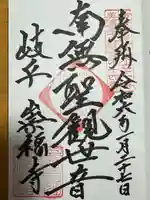 奉拜 令和六年一月二十日
南無聖観世音
岐阜 崇福寺